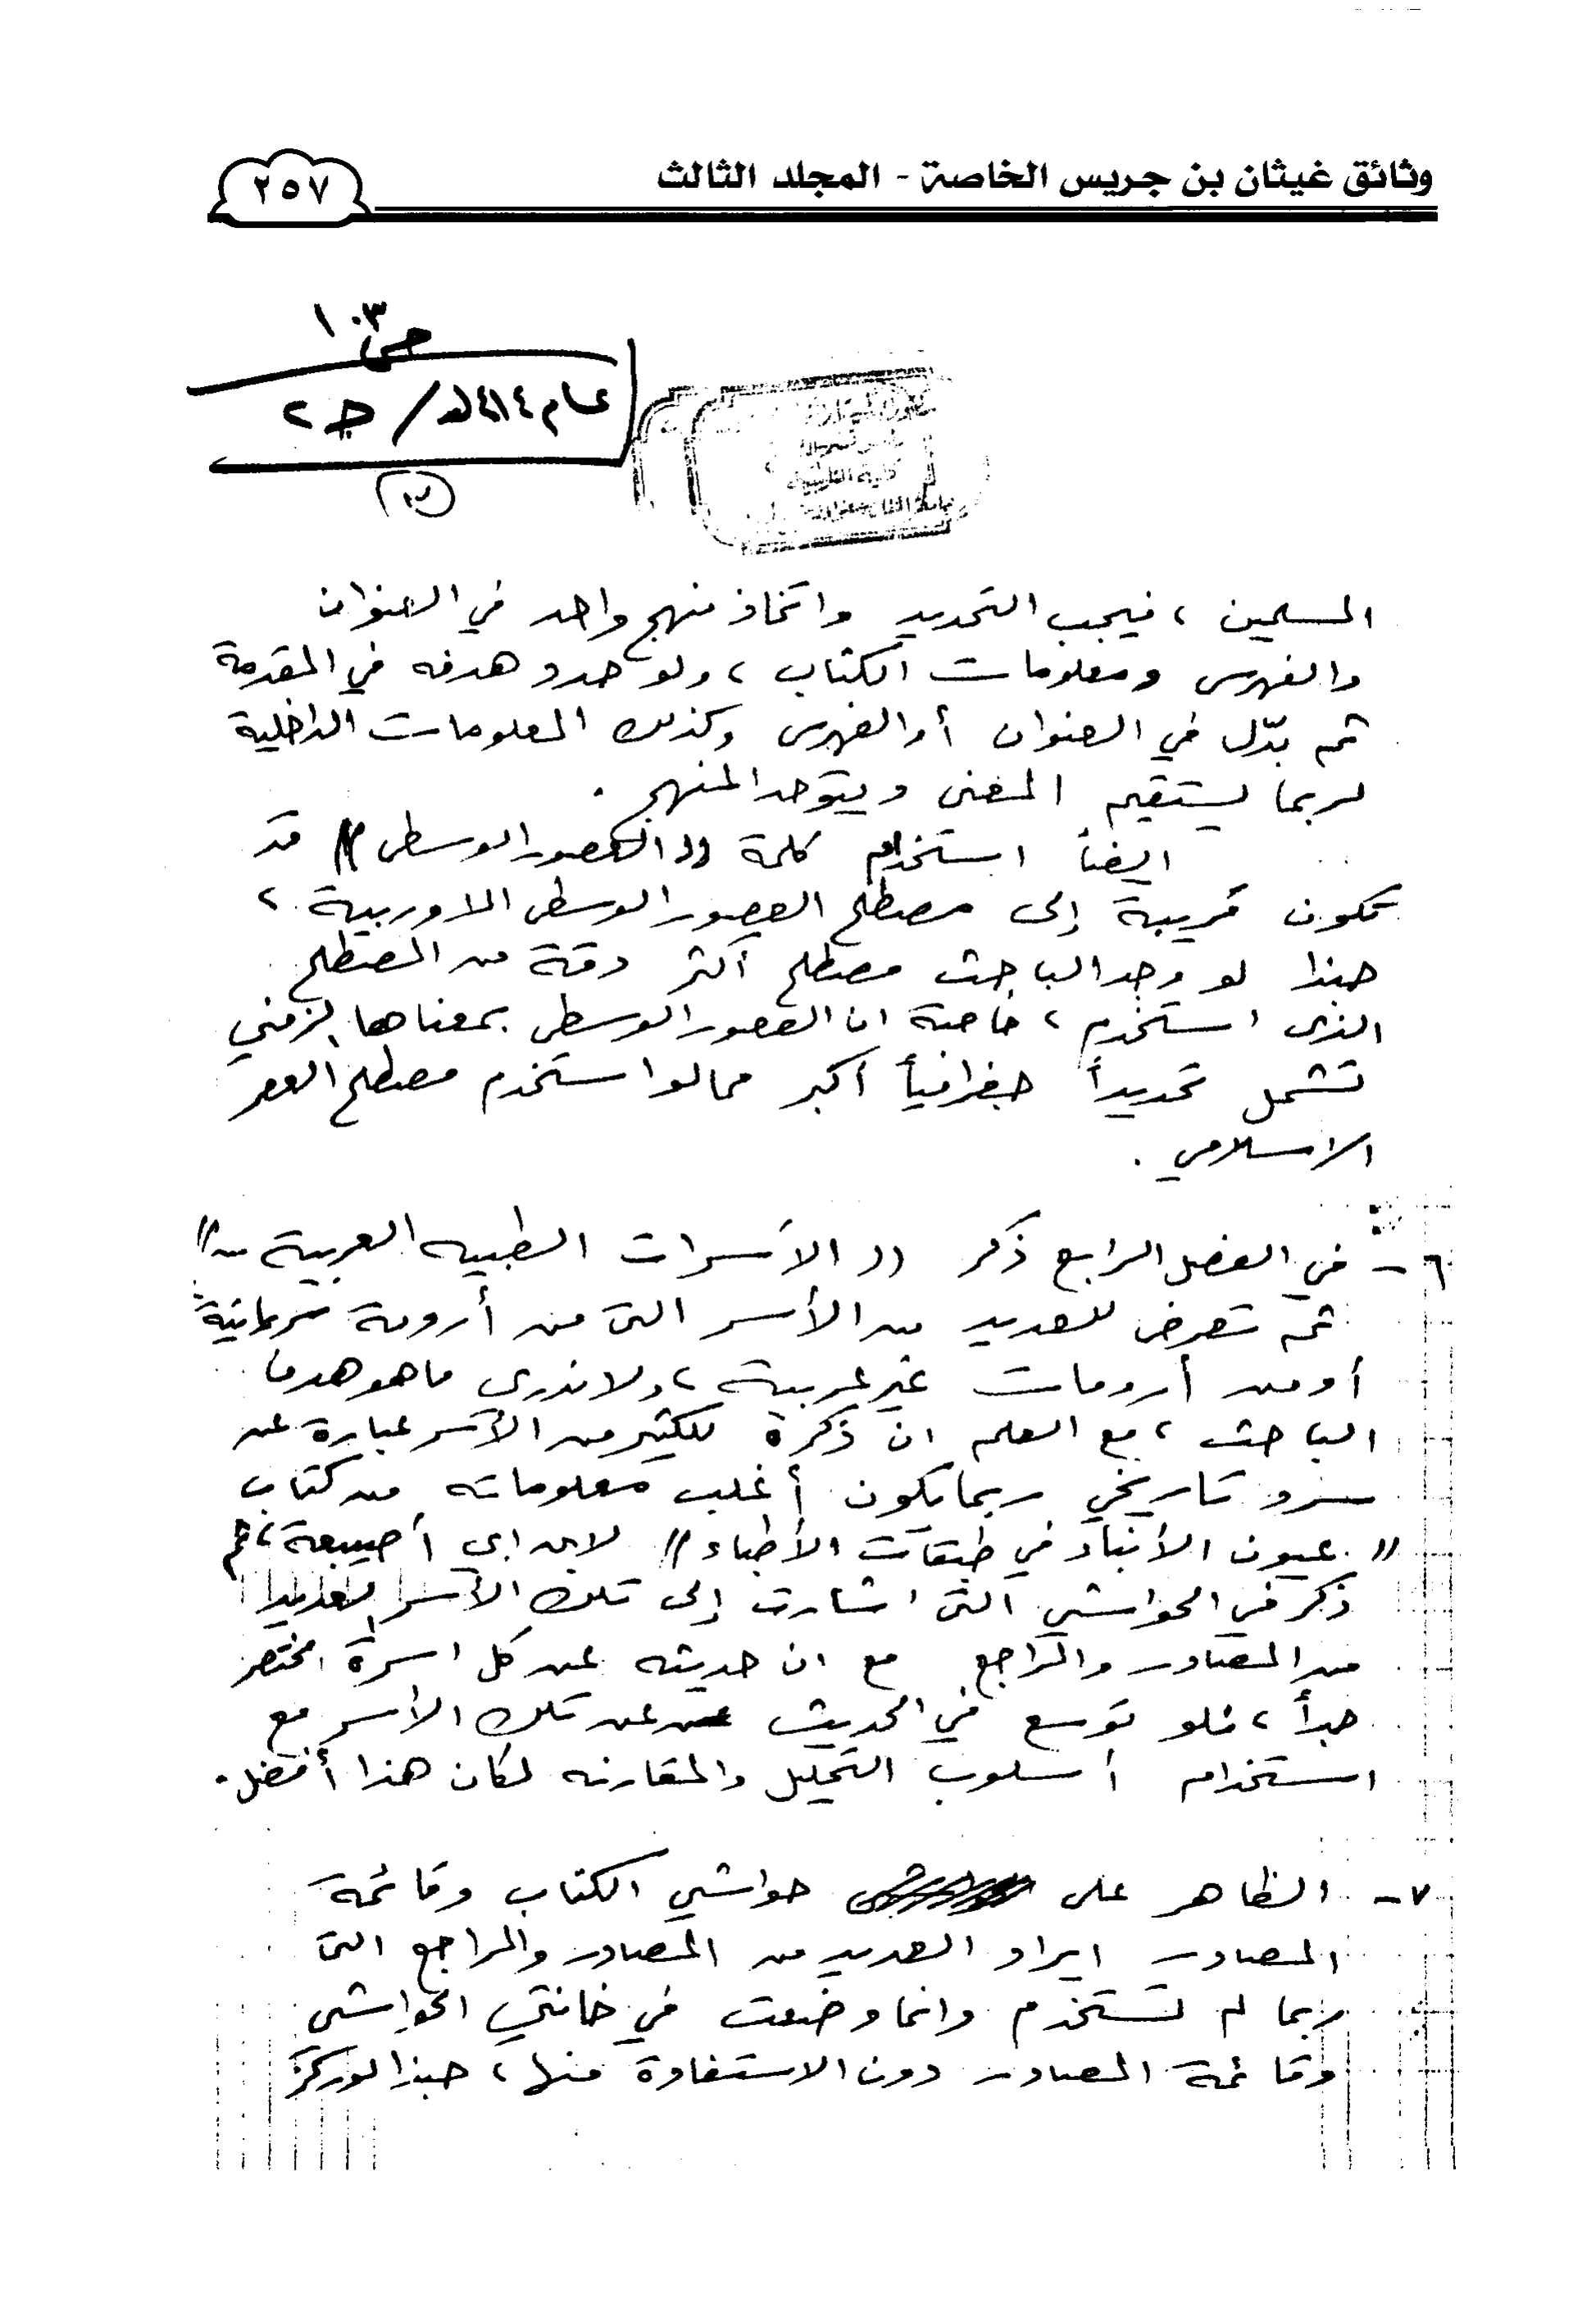 وثائق غيثان بن جريس الخاصة - المجلد الثالث
٢٥٧
ص ١٠٣
عام ١٤١٤هـ / جـ ٢
كلية التربية
المسلمين ، فيجب التحديد واتخاذ منهج واحد في العنوان
والفهرس ومعلومات الكتاب ، ولو حدد هدفه في المقدمة
ثم بدّل في العنوان أو الفهرس وكذلك المعلومات الداخلية
لربما يستقيم المعنى ويتوحد المنهج .
ايضاً استخدام كلمة (( العصور الوسطى )) قد
تكون قريبة إلى مصطلح العصور الوسطى الاوربية ،
حبذا لو وجد الباحث مصطلح أكثر دقة من المصطلح
الذي استخدم ، خاصة ان العصور الوسطى بمعناها الزمني
تشمل تحديداً جغرافياً أكبر مما لو استخدم مصطلح العصر
الاسلامي .
٦ - في الفصل الرابع ذكر (( الأسرات الطبيه العربية .. ))
ثم تعرض للعديد من الأسر التي من أرومة سريانية
أو من أرومات غير عربية ، ولا ندري ما هو هدف
الباحث ، مع العلم ان ذكرة للكثير من الأسر عبارة عن
سرد تاريخي ربما تكون أغلب معلوماته من كتاب
(( عيون الأنباء في طبقات الأطباء )) لابن ابي أصيبعة ، ثم
ذكر في الحواشي التي اشارت إلى تلك الأسر العديد
من المصادر والمراجع مع ان حديثه عن كل اسرة مختصر
جداً ، فلو توسع في الحديث عن تلك الأسر مع
استخدام أسلوب التحليل والمقارنه لكان هذا أفضل .
٧ - الظاهر على حواشي الكتاب وقائمة
المصادر ايراد العديد من المصادر والمراجع التي
ربما لم تستخدم وانما وضعت في خانتي الحواشي
وقائمة المصادر دون الاستفادة منها ، حبذا لو ركز